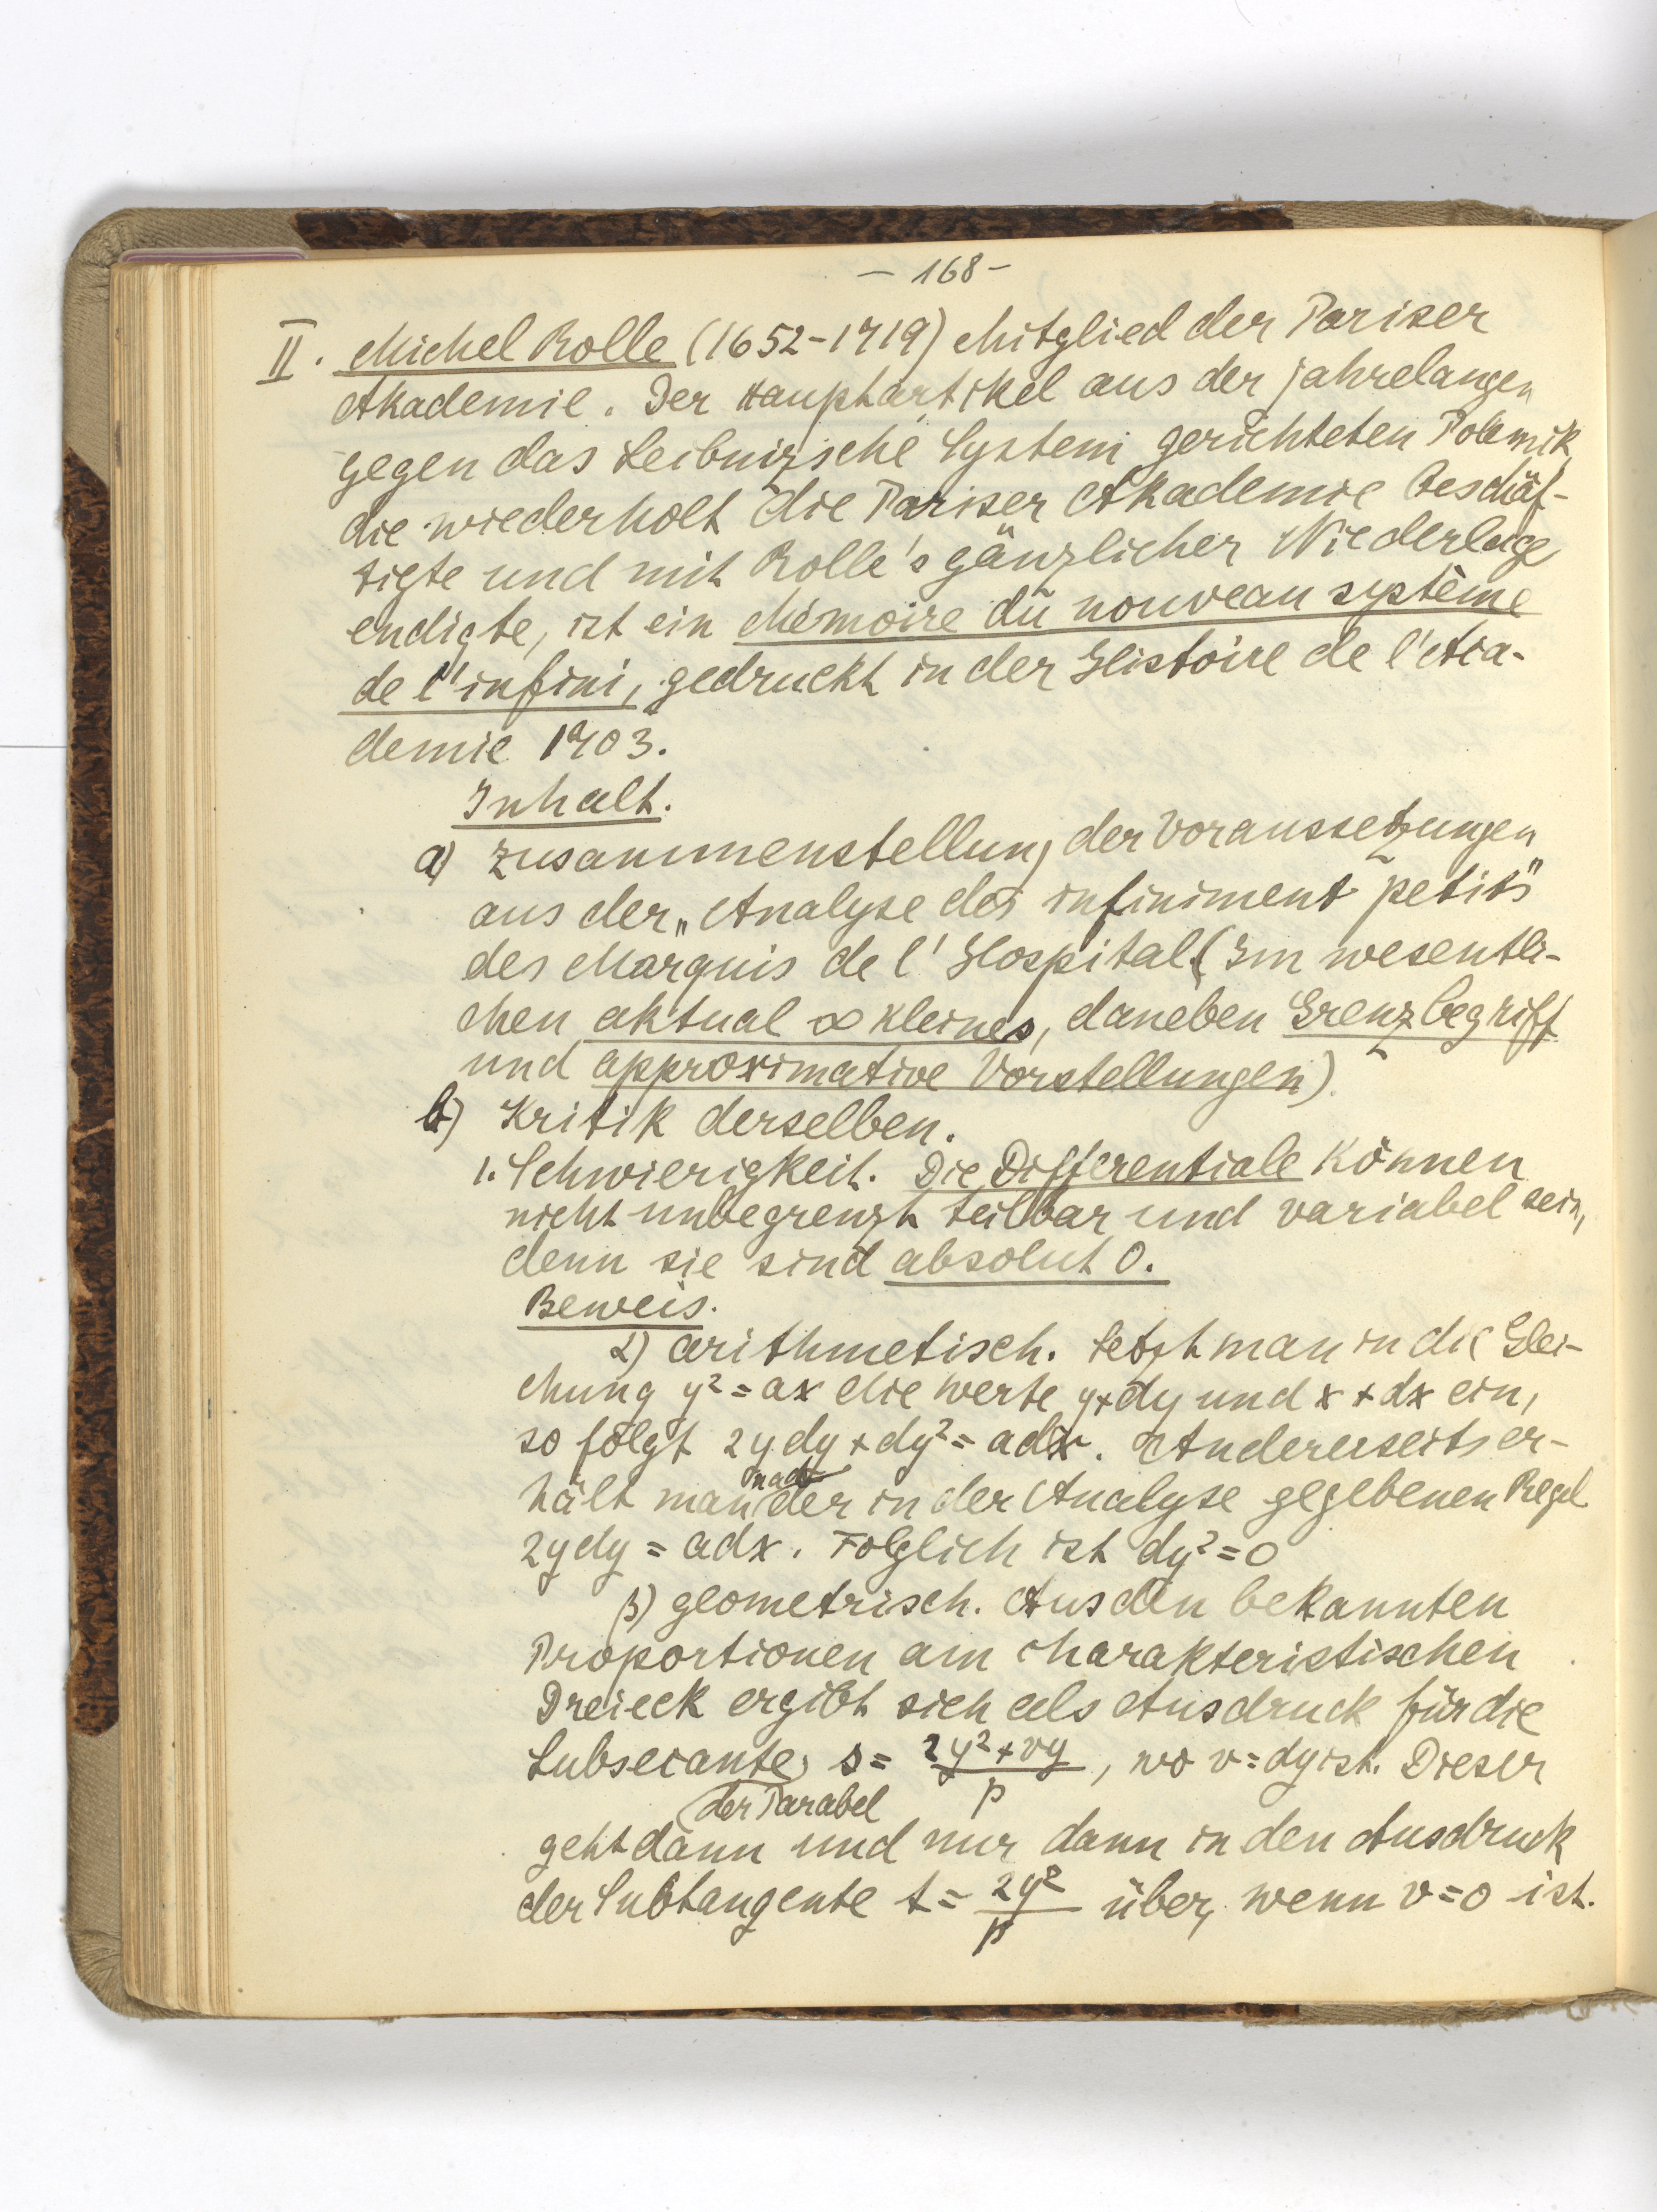 – 168 –
II. Michel Rolle (1652–1719) Mitglied der Pariser
Akademie. Der Hauptartikel aus der jahrelangen
gegen das Leibnizsche System gerichteten Polemik,
die wiederholt die Pariser Akademie beschäf-
tigte und mit Rolle's gänzlicher Niederlage
endigte, ist ein Mémoire du nouveau système
de l'infini, gedruckt in der Histoire de l'Aca-
demie 1703.
Inhalt.
a) Zusammenstellung der Voraussetzungen
aus der „Analyse des infiniment petits“
des Marquis de l'Hospital (Im wesentli-
chen aktual ∞ kleines, daneben Grenzbegriff
und approximative Vorstellungen).
b) Kritik derselben.
1. Schwierigkeit. Die Differentiale können
nicht unbegrenzt teilbar und variabel sein,
denn sie sind absolut 0.
Beweis.
α) arithmetisch. Setzt man in die Glei-
chung y² = ax die Werte y+dy und x+dx ein,
so folgt 2ydy + dy² = adx. Andererseits er-
hält man nach der in der Analyse gegebenen Regel
2ydy = adx. Folglich ist dy² = 0
β) geometrisch. Aus den bekannten
Proportionen am charakteristischen
Dreieck ergibt sich als Ausdruck für die
Subsecante der Parabel s = (2y² + vy)/p, wo v = dy ist. Dieser
geht dann und nur dann in den Ausdruck
der Subtangente t = 2y²/p über, wenn v = 0 ist.